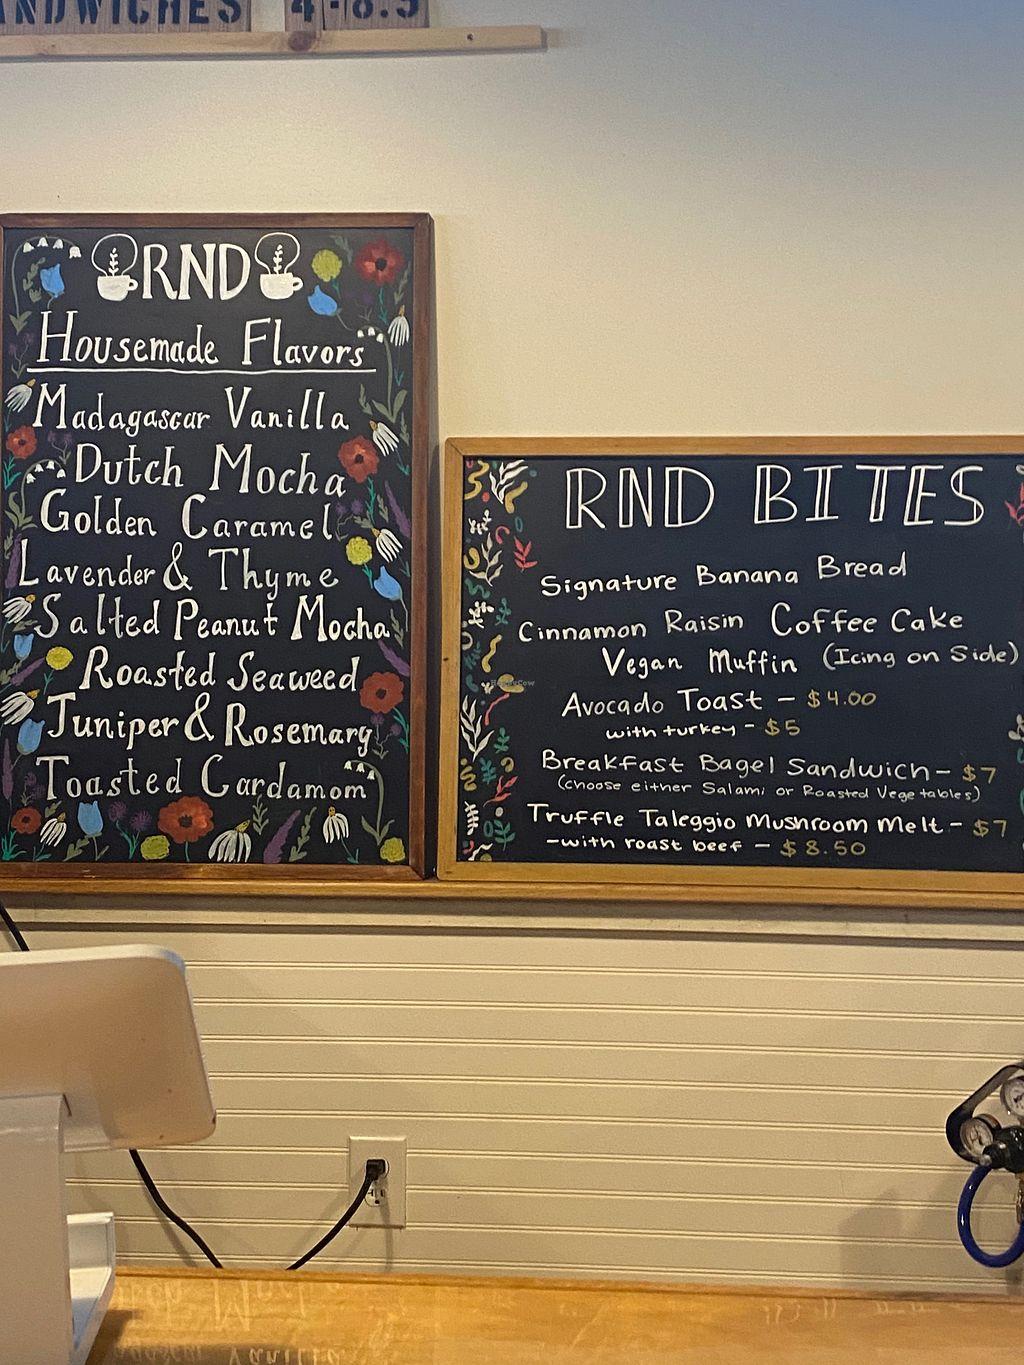 NDWICHES 4-8.5
RND
Housemade Flavors
Madagascar Vanilla
Dutch Mocha
Golden Caramel
Lavender & Thyme
Salted Peanut Mocha
Roasted Seaweed
Juniper & Rosemary
Toasted Cardamom
RND BITES
Signature Banana Bread
Cinnamon Raisin Coffee Cake
Vegan Muffin (Icing on Side)
Avocado Toast - $4.00
with turkey - $5
Breakfast Bagel Sandwich - $7
(choose either Salami or Roasted Vegetables)
Truffle Taleggio Mushroom Melt - $7
-with roast beef - $8.50